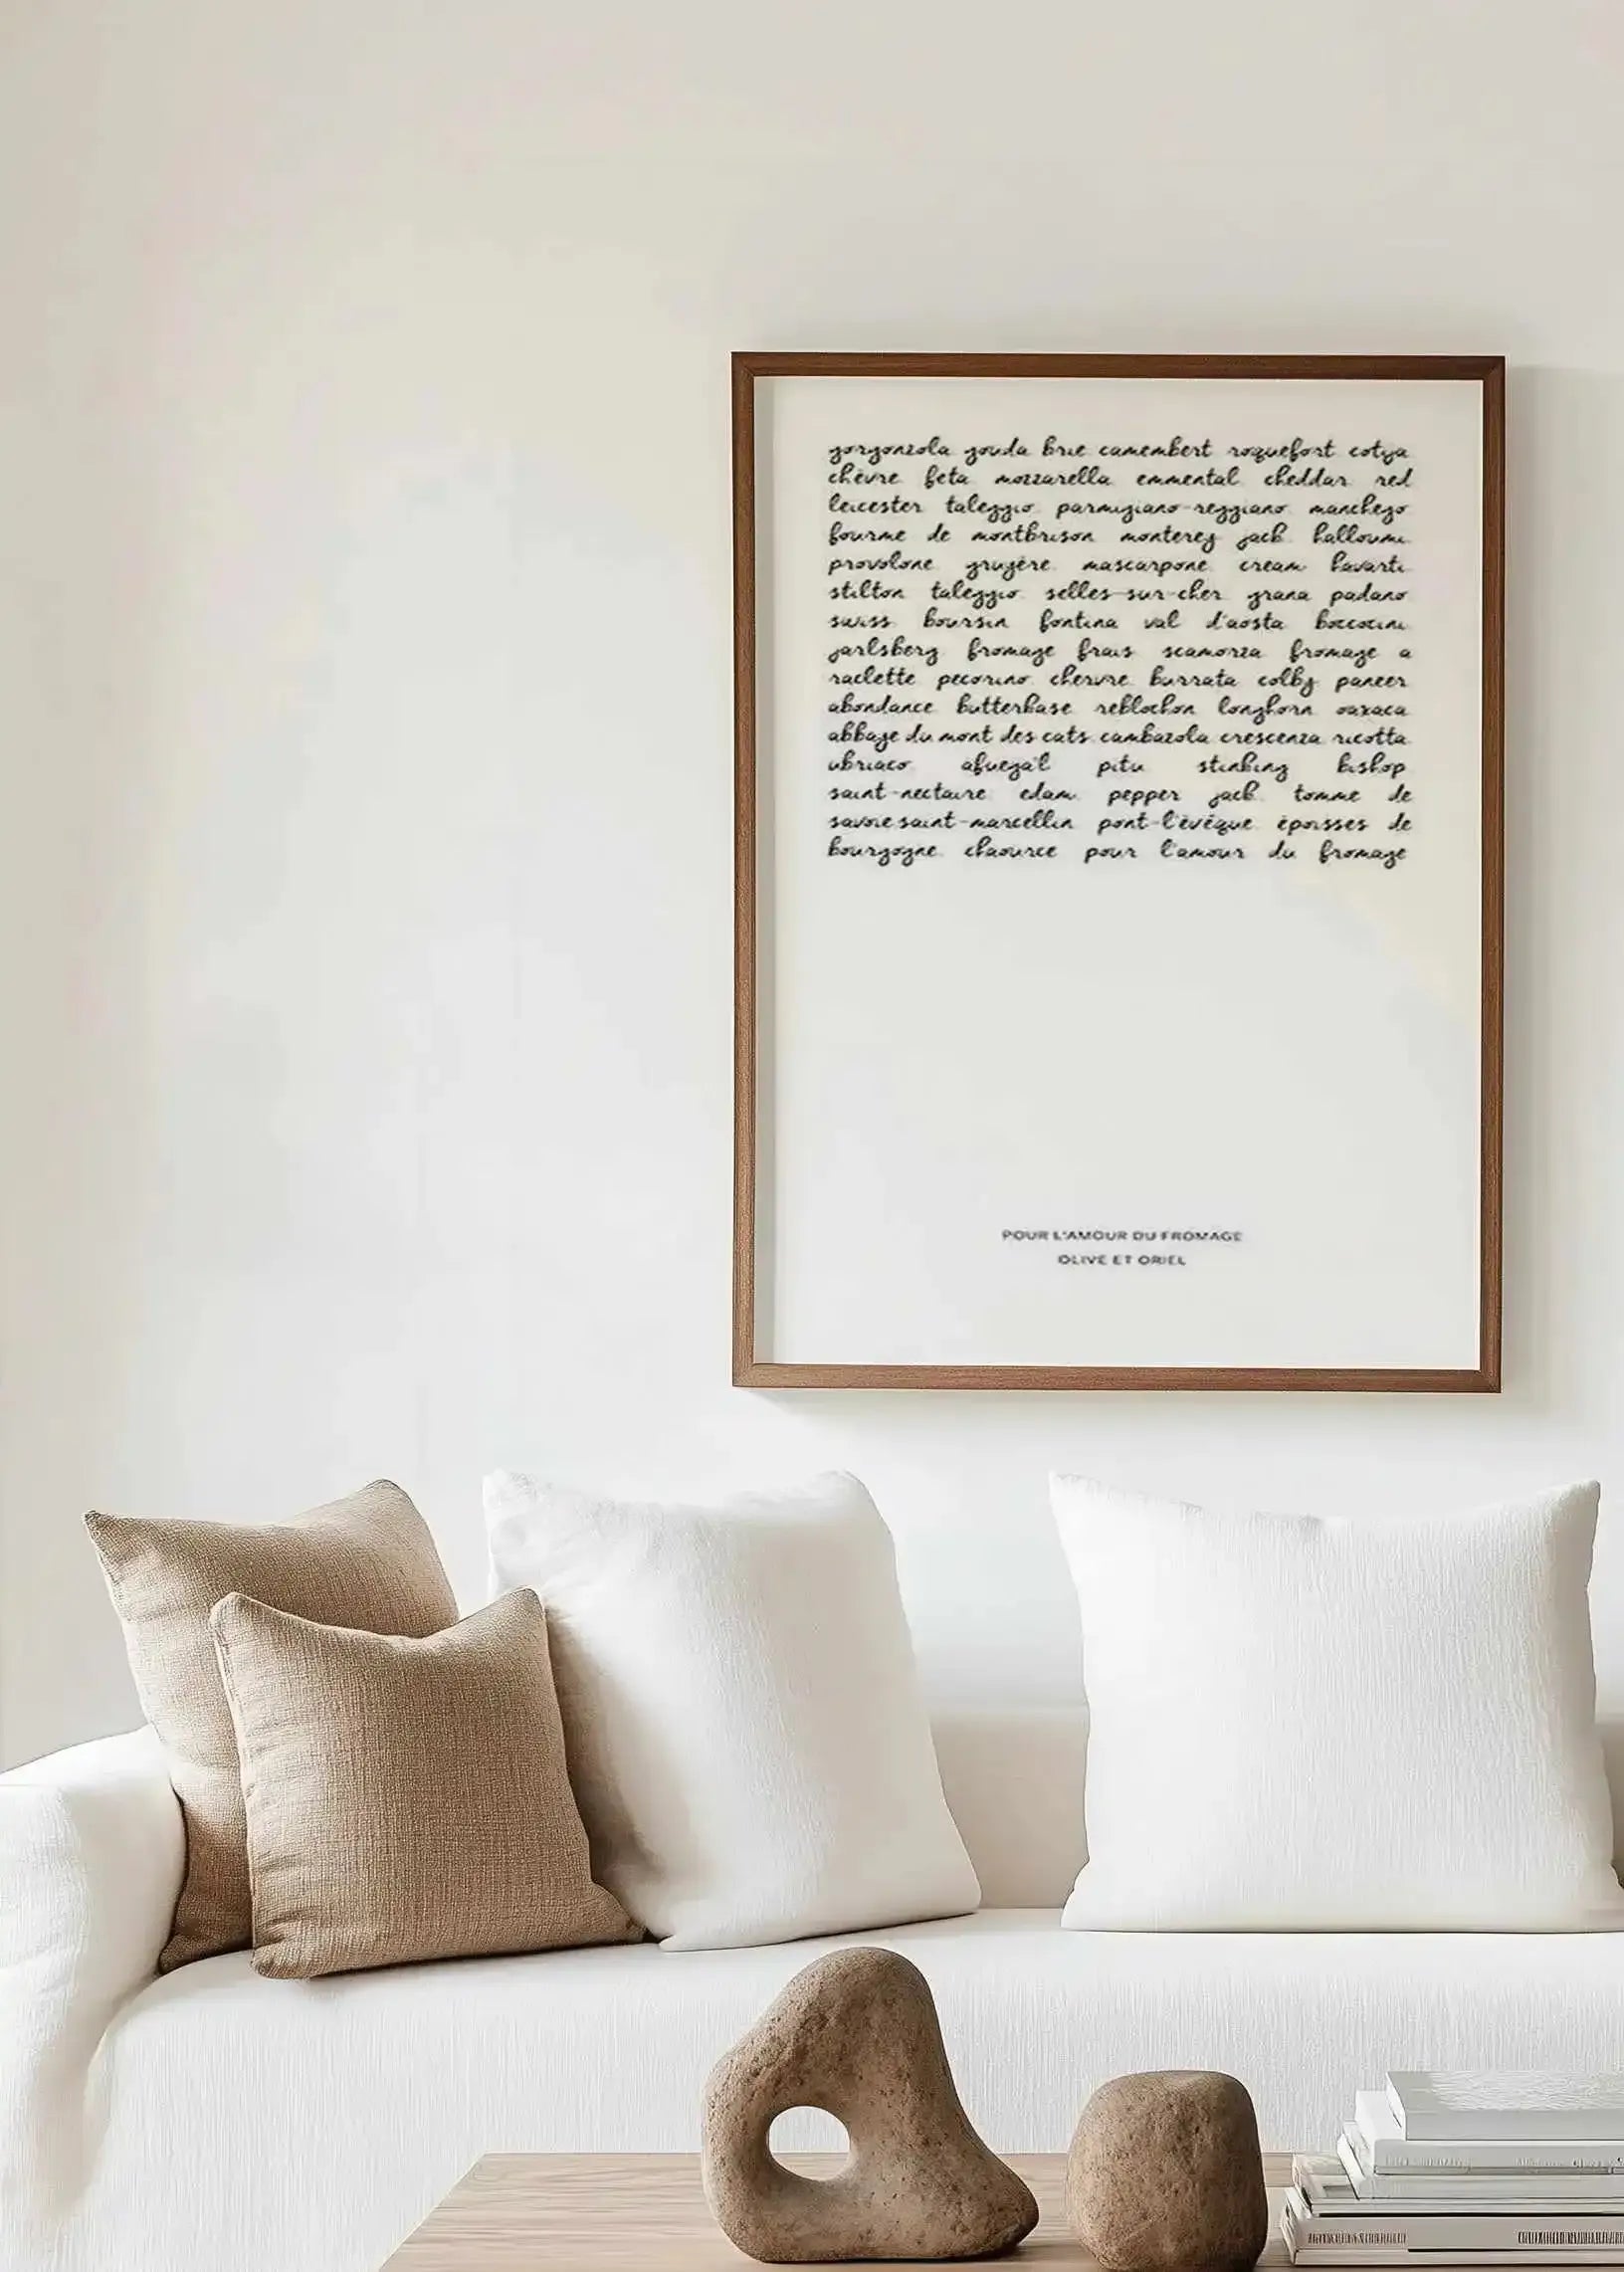 gorgonzola gouda brie camembert roquefort cotija
chèvre feta mozzarella emmental cheddar red
leicester taleggio parmigiano-reggiano manchego
fourme de montbrison monterey jack halloumi
provolone gruyère mascarpone cream havarti
stilton taleggio selles-sur-cher grana padano
swiss boursin fontina val d'aosta boccocini
jarlsberg fromage frais scamorza fromage a
raclette pecorino chervre burrata colby paneer
abondance butterkase reblochon longhorn oaxaca
abbaye du mont des cats cambazola crescenza ricotta
ubriaco afuega'l pitu stinking bishop
saint-nectaire edam pepper jack tomme de
savoie saint-marcellin pont-l'évêque époisses de
bourgogne chaource pour l'amour du fromage
POUR L'AMOUR DU FROMAGE
OLIVE ET ORIEL